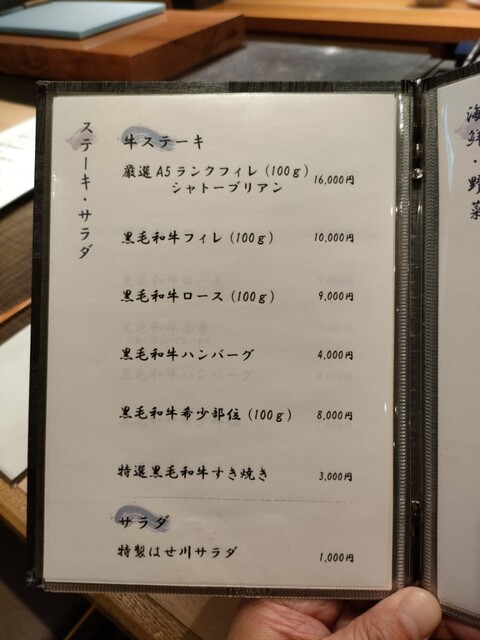 ステーキ・サラダ
牛ステーキ
厳選A5ランクフィレ(100g)
シャトーブリアン 16,000円
黒毛和牛フィレ(100g) 10,000円
黒毛和牛ロース(100g) 9,000円
黒毛和牛ハンバーグ 4,000円
黒毛和牛希少部位(100g) 8,000円
特選黒毛和牛すき焼き 3,000円
サラダ
特製はせ川サラダ 1,000円
海鮮・野菜